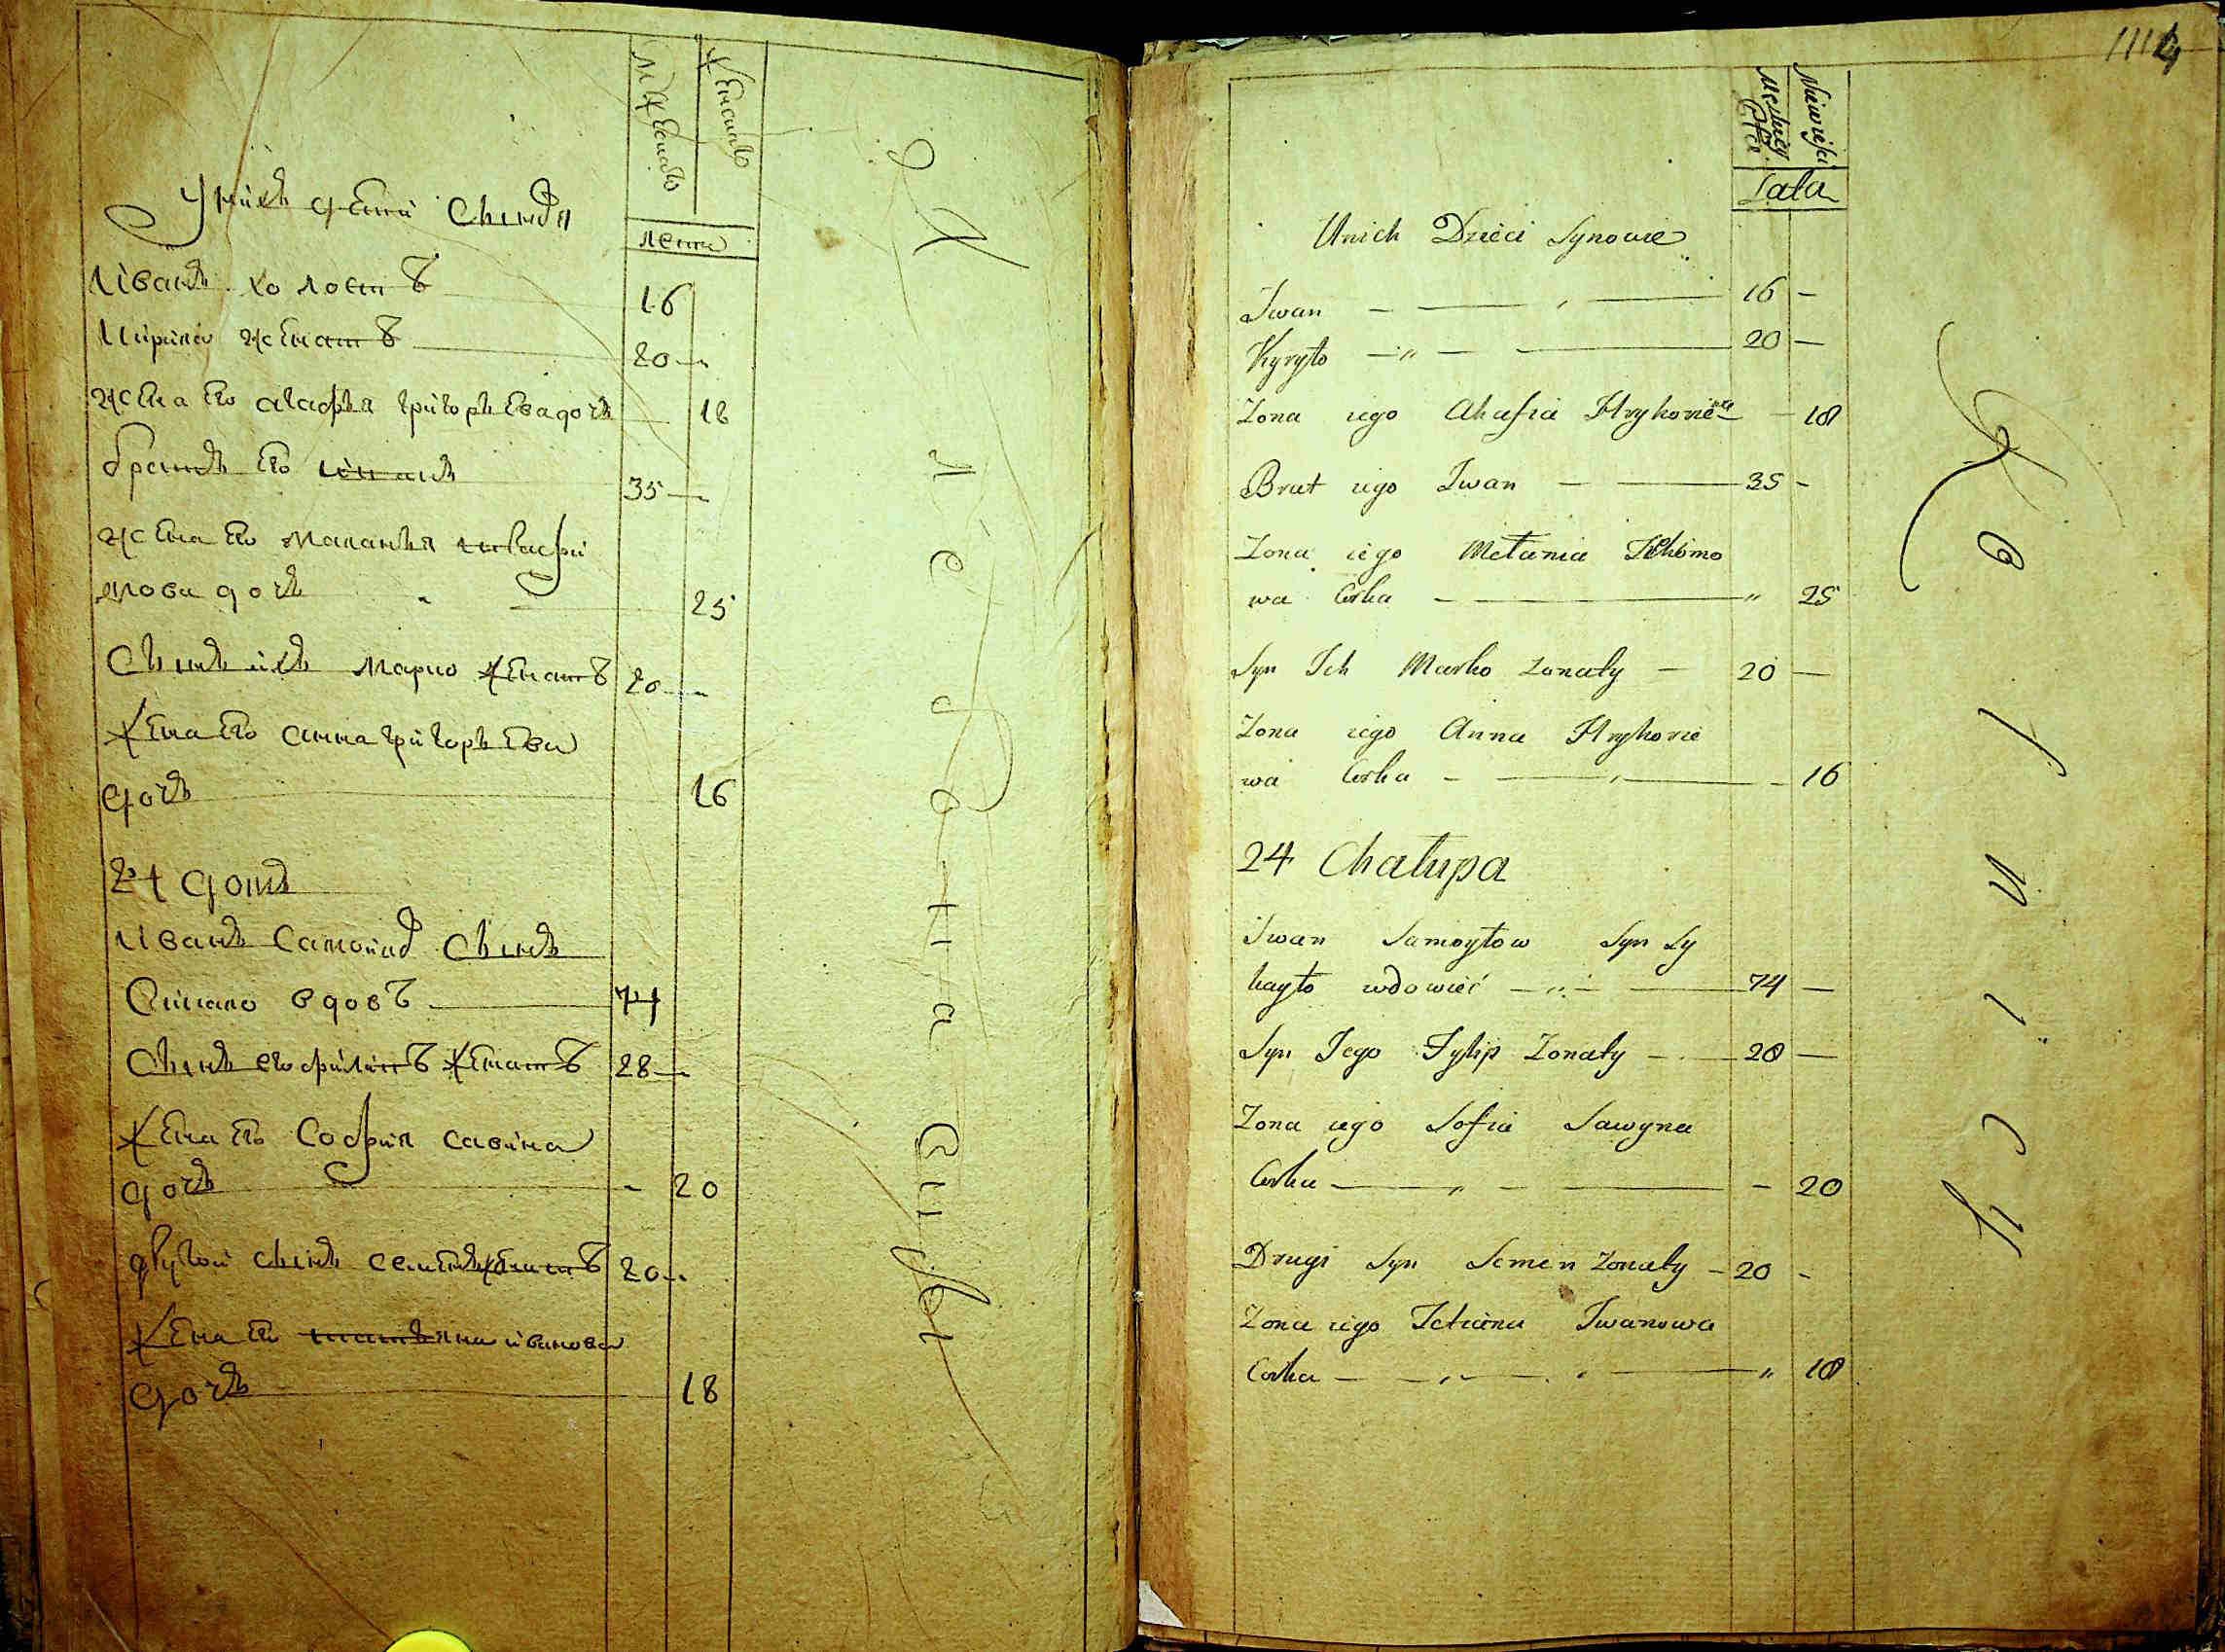 мужеска
женска
лета
У нихъ дети сынъя
Иванъ холостъ 16
Кирило женатъ 20
жена его агафья григорьева дочь 18
братъ его иванъ 35
жена его маланья
мова дочь 25
Сынъ ихъ марко женатъ 20
жена его анна григорьева
дочь 16
24 домъ
Иванъ Самойлов Сынъ
вдовъ 74
Сынъ его филипъ женатъ 28
жена его София савина
дочь 20
другой сынъ семенъ женатъ 20
жена его татьяна иванова
дочь 18
1114
Męskiey
Płci
Niewieściey
Lata
Unich Dzieci Synowie
Iwan 16 —
Kyryło 20 —
Zona iego Ahafia Hryhoriewa — 18
Brat iego Iwan 35 —
Zona iego Mełania
wa Corka 25
Syn Ich Marko Zonaty — 20 —
Zona iego Anna Hryhorie
wa Corka — 16
24 Chałupa
Iwan Samoyłow Syn Sy
kayło wdowieć 74 —
Syn Jego Fylip Zonaty — 28 —
Zona iego Sofia Sawyna
Corka — 20
Drugi Syn Semen Zonaty — 20 —
Zona iego Tetiana Iwanowa
Corka 18